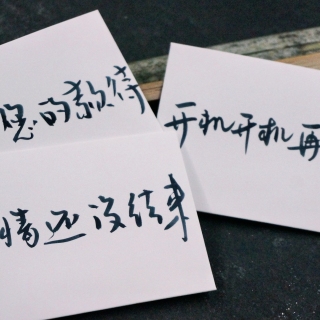 您的款待
开机开机再
情还没结束